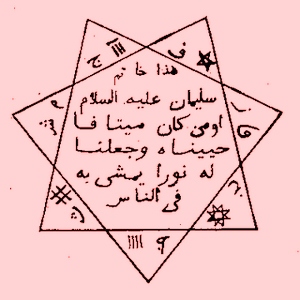 هذا خاتم
سليمان عليه السلام
اومن كان ميتا فا
حييناه وجعلنا
له نورا يمشى به
فى الناس